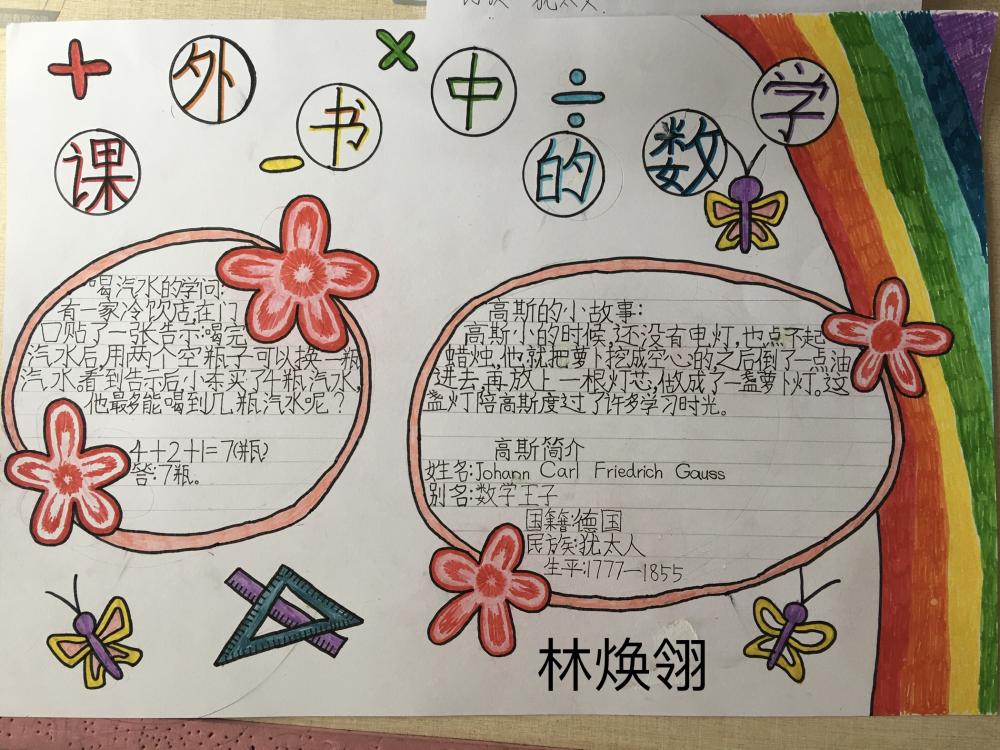 课外书中的数学
喝汽水的学问:
有一家冷饮店在门
口贴了一张告示:喝完
汽水后,用两个空瓶子可以换一瓶
汽水.看到告示后,小东买了4瓶汽水,
他最多能喝到几瓶汽水呢?
4+2+1=7(瓶)
答:7瓶。
高斯的小故事:
高斯小的时候,还没有电灯,也点不起
蜡烛,他就把萝卜挖成空心的之后倒了一点油
进去,再放上一根灯芯,做成了一盏萝卜灯。这
盏灯陪高斯度过了许多学习时光。
高斯简介
姓名:Johann Carl Friedrich Gauss
别名:数学王子
国籍:德国
民族:犹太人
生平:1777—1855
林焕翎